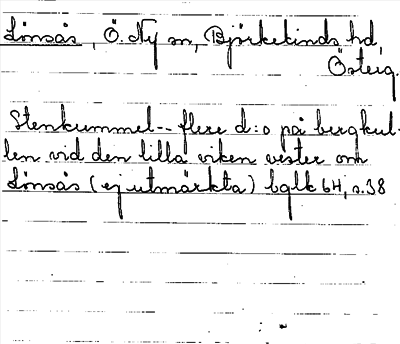 Lönsås, Ö. Ny sn, Björkekinds hd,
Österg.
Stenkummel-- flere d:o på bergkul-
len vid den lilla viken vester om
Lönsås (ej utmärkta) bglk 64, s.38